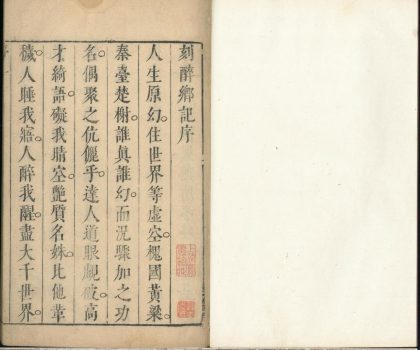 刻醉鄉記序
人生原幻住世界等虛空槐國黃粱
秦臺楚榭誰眞誰幻而況驟加之功
名偶聚之伉儷乎達人道眼覷破高
才綺語礙我睛空艷質名姝比他葷
穢人睡我寤人醉我醒盡大千世界